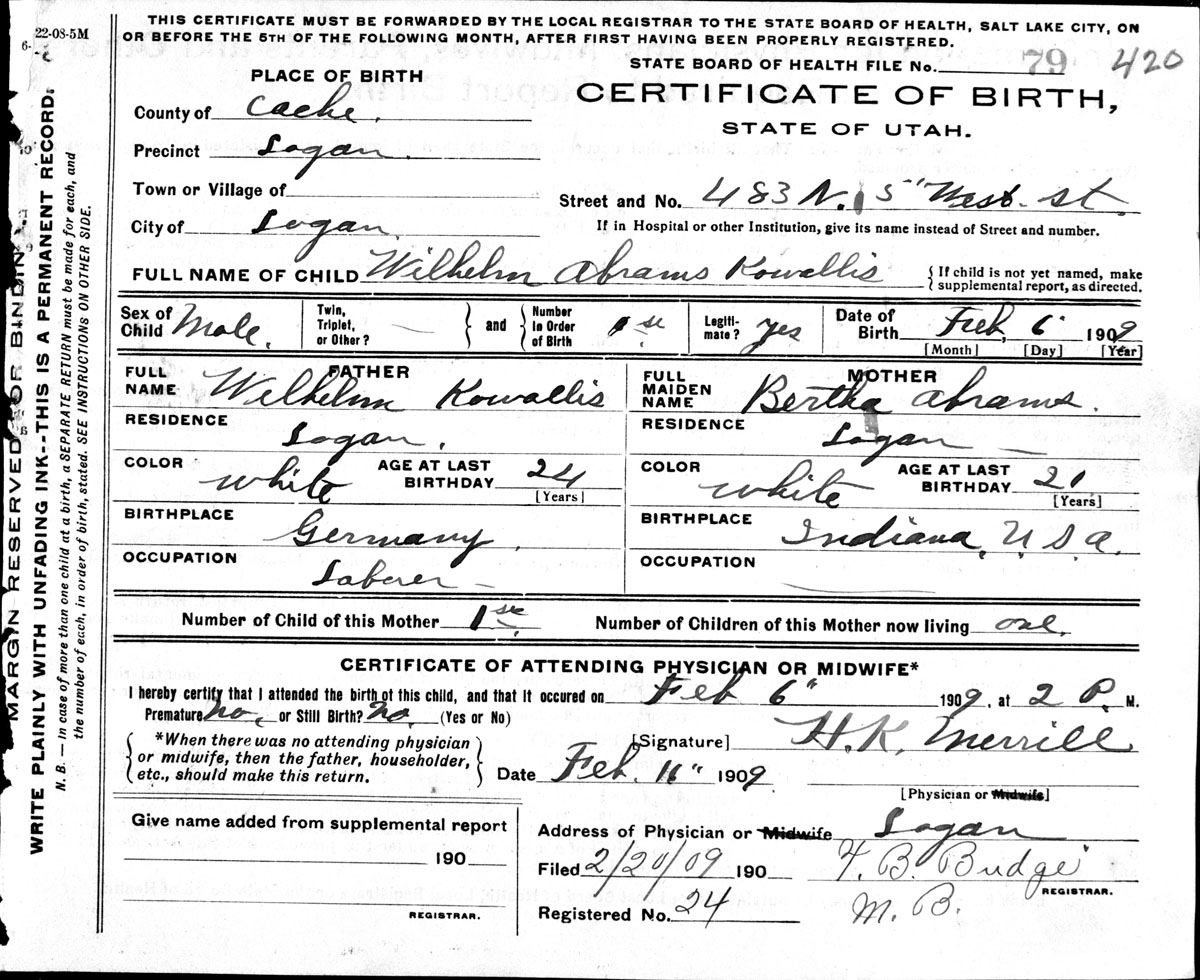 THIS CERTIFICATE MUST BE FORWARDED BY THE LOCAL REGISTRAR TO THE STATE BOARD OF HEALTH, SALT LAKE CITY, ON
OR BEFORE THE 5TH OF THE FOLLOWING MONTH, AFTER FIRST HAVING BEEN PROPERLY REGISTERED.
22-08-5M
STATE BOARD OF HEALTH FILE No. 79 420
PLACE OF BIRTH
CERTIFICATE OF BIRTH,
STATE OF UTAH.
County of Cache.
Precinct Logan.
Town or Village of
Street and No. 483 N. 5" West St.
City of Logan.
If in Hospital or other Institution, give its name instead of Street and number.
FULL NAME OF CHILD Wilhelm Abrams Kowallis { If child is not yet named, make
supplemental report, as directed.
Sex of Child Male. Twin, Triplet, or Other? — } and { Number in Order of Birth 1st Legiti-mate? yes Date of Birth Feb, 6 1909
[Month] [Day] [Year]
FATHER
FULL NAME Wilhelm Kowallis
MOTHER
FULL MAIDEN NAME Bertha Abrams.
RESIDENCE Logan.
RESIDENCE Logan —
COLOR white AGE AT LAST BIRTHDAY 24 [Years]
COLOR white AGE AT LAST BIRTHDAY 21 [Years]
BIRTHPLACE Germany.
BIRTHPLACE Indiana, U.S.A.
OCCUPATION Laborer —
OCCUPATION
Number of Child of this Mother 1st Number of Children of this Mother now living one.
CERTIFICATE OF ATTENDING PHYSICIAN OR MIDWIFE*
I hereby certify that I attended the birth of this child, and that it occured on Feb 6" 1909, at 2 P. M.
Premature No, or Still Birth? No. (Yes or No)
*When there was no attending physician
or midwife, then the father, householder,
etc., should make this return.
[Signature] H. K. Merrill
Date Feb. 11" 1909
[Physician or Midwife]
Give name added from supplemental report
190
REGISTRAR.
Address of Physician or Midwife Logan
Filed 2/20/09 190 F. B. Budge
REGISTRAR.
Registered No. 24 M. B.
MARGIN RESERVED FOR BINDING
WRITE PLAINLY WITH UNFADING INK--THIS IS A PERMANENT RECORD.
N. B.—In case of more than one child at a birth, a SEPARATE RETURN must be made for each, and
the number of each, in order of birth, stated. SEE INSTRUCTIONS ON OTHER SIDE.